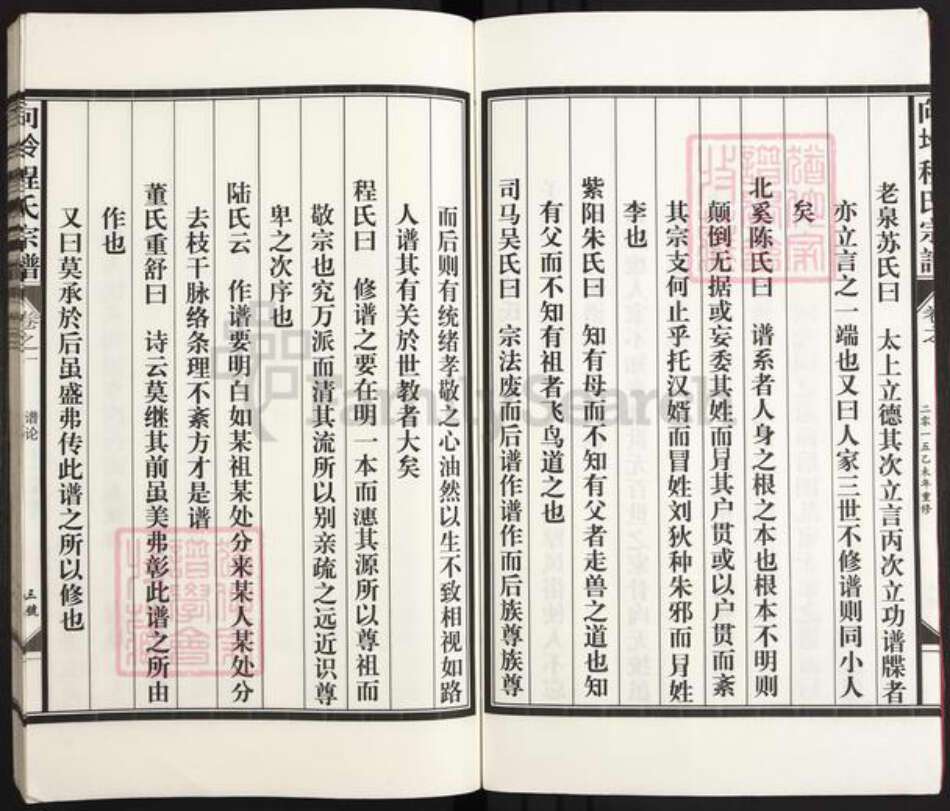 老泉苏氏曰 太上立德其次立言丙次立功谱牒者
亦立言之一端也又曰人家三世不修谱则同小人
矣
北奚陈氏曰 谱系者人身之根之本也根本不明则
颠倒无据或妄委其姓而冐其户贯或以户贯而紊
其宗支何止乎托汉婿而冒姓刘狄种朱邪而冐姓
李也
紫阳朱氏曰 知有母而不知有父者走兽之道也知
有父而不知有祖者飞鸟道之也
司马吴氏曰 宗法废而后谱作谱作而后族尊族尊
而后则有统绪孝敬之心油然以生不致相视如路
人谱其有关於世教者大矣
程氏曰 修谱之要在明一本而漗其源所以尊祖而
敬宗也究万派而清其流所以别亲疏之远近识尊
卑之次序也
陆氏云 作谱要明白如某祖某处分来某人某处分
去枝干脉络条理不紊方才是谱
董氏重舒曰 诗云莫继其前虽美弗彰此谱之所由
作也
又曰莫承於后虽盛弗传此谱之所以修也
程氏宗谱
卷之一
谱论
三號
二零一五乙未年重修
FamilySearch